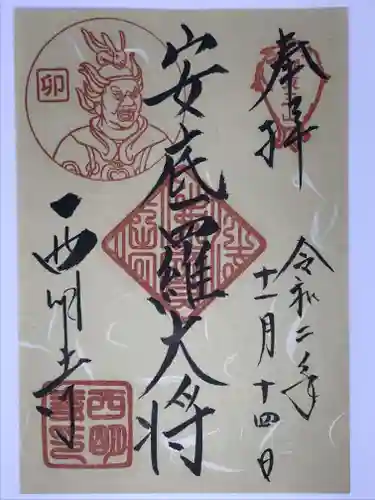 奉拝
令和二年
十一月十四日
安底羅大将
西明寺
卯